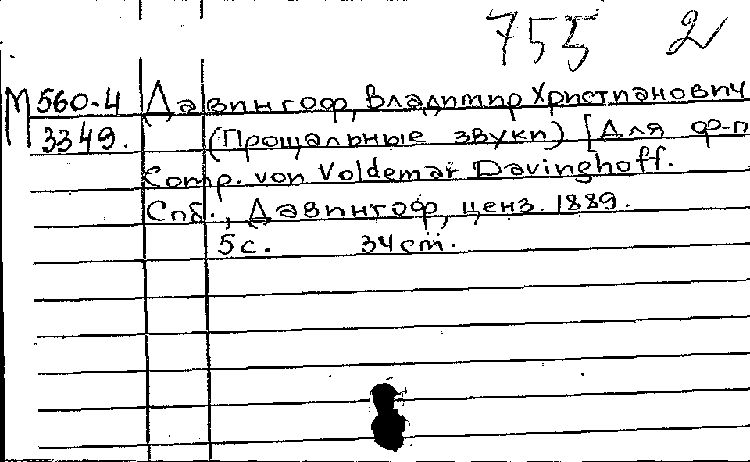 755 2
М 560-4 Давингоф, Владимир Христианович
3349. (Прощальные звуки) [Для ф-п
Comp. von Voldemar Davinghoff.
Спб., Давингоф, ценз. 1889.
5 с. 34 cm.